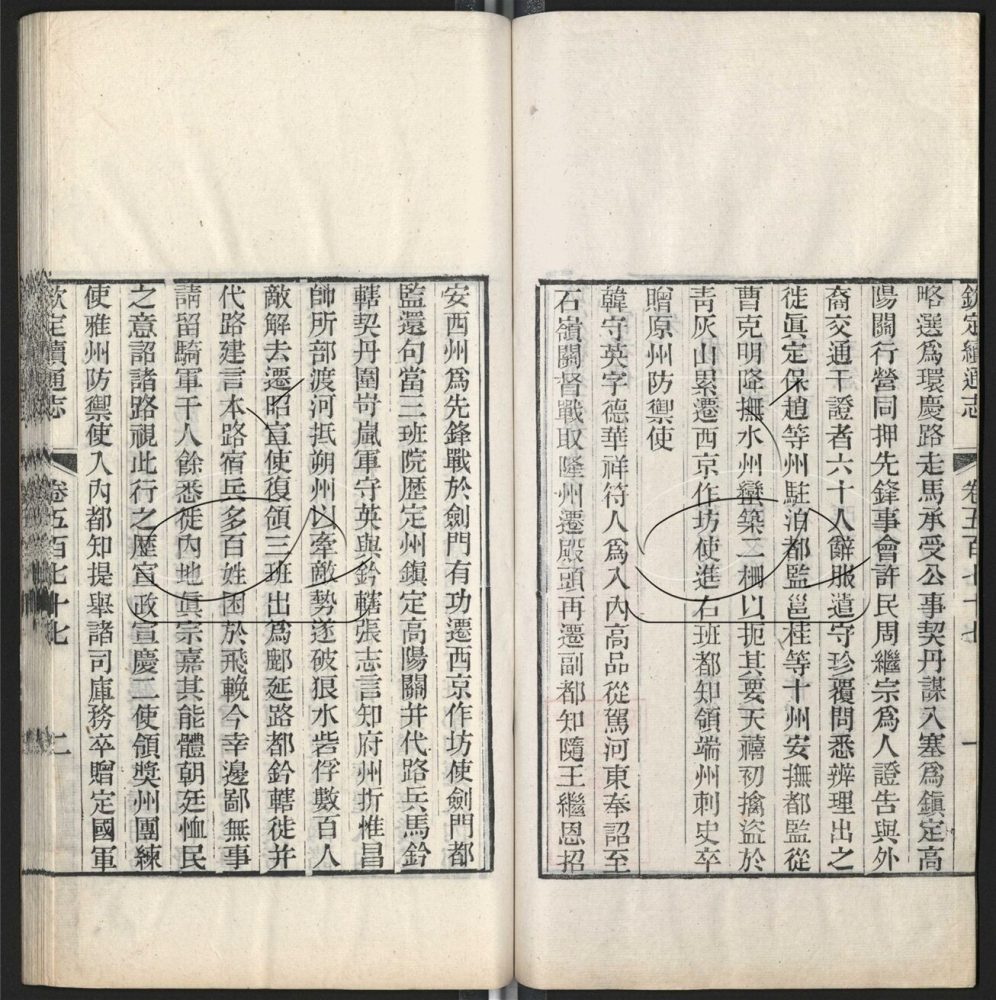 欽定續通志 卷五百七十七 一
略選爲環慶路走馬承受公事契丹謀入塞爲鎮定高
陽關行營同押先鋒事會許民周繼宗爲人證告與外
裔交通干證者六十人辭服遣守珍覆問悉辨理出之
徙眞定保趙等州駐泊都監邕桂等十州安撫都監從
曹克明降撫水州蠻築二柵以扼其要天禧初擒盜於
青灰山累遷西京作坊使進右班都知領端州刺史卒
贈原州防禦使
韓守英字德華祥符人爲入內高品從駕河東奉詔至
石嶺關督戰取隆州遷殿頭再遷副都知隨王繼恩招
安西州爲先鋒戰於劍門有功遷西京作坊使劍門都
監還句當三班院歷定州鎮定高陽關并代路兵馬鈐
轄契丹圍岢嵐軍守英與鈐轄張志言知府州折惟昌
帥所部渡河抵朔州以牽敵勢遂破狼水砦俘數百人
敵解去遷昭宣使復領三班出爲鄜延路都鈐轄徙并
代路建言本路宿兵多百姓困於飛輓今幸邊鄙無事
請留騎軍千人餘悉徙內地眞宗嘉其能體朝廷恤民
之意詔諸路視此行之歷官政宣慶二使領獎州團練
使雅州防禦使入內都知提舉諸司庫務卒贈定國軍
欽定續通志 卷五百七十七 二